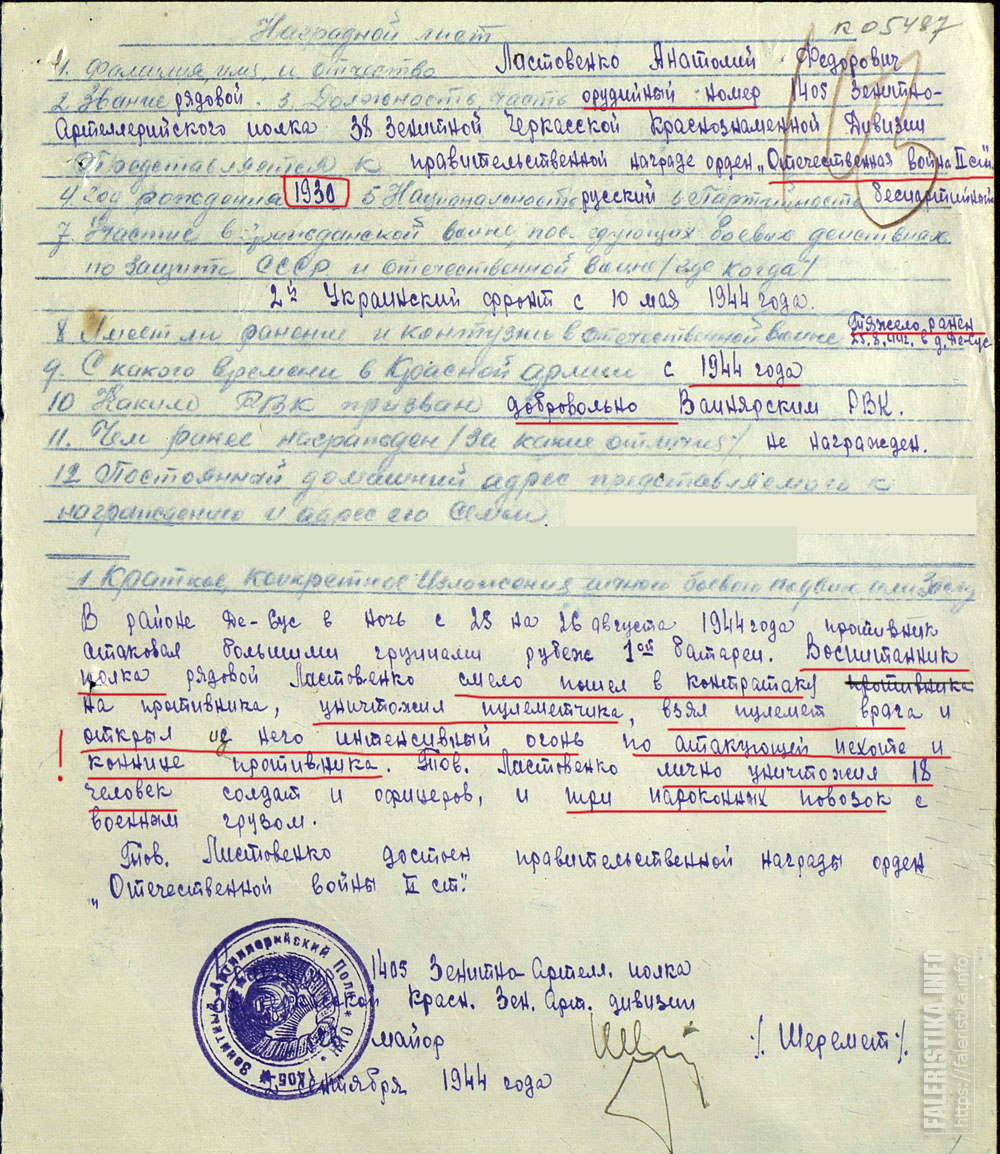 Наградной лист
R 05487
103
1. Фамилия, имя и отчество Ластовенко Анатолий Федорович
2. Звание рядовой. 3. Должность, часть орудийный номер 1405 Зенитно-
Артеллерийского полка 38 Зенитной Черкасской Краснознаменной Дивизии
Представляется к правительственной награде орден „Отечественная война II ст."
4. Год рождения 1930 5 Национальность русский 6 Партийность беспартийный
7. Участие в гражданской войне, последующих боевых действиях
по защите СССР и отечественной войне /где когда/
2й Украинский фронт с 10 мая 1944 года.
8 Имеет ли ранение и контузии в отечественной войне Тяжело ранен
в д. Де-Сус
9. С какого времени в Красной армии с 1944 года
10 Каким РВК призван добровольно Вапнярским РВК.
11. Чем ранее награжден /За какие отличия/ не награжден.
12 Постоянный домашний адрес представляемого к
награждению и адрес его семьи.
1 Краткое, конкретное изложения личного боевого подвига или
В районе Де-Сус в ночь с 25 на 26 августа 1944 года противник
атаковал большими группами рубеж 1ой батареи. Воспитанник
полка рядовой Ластовенко смело пошел в контратаку противника
на противника, уничтожил пулеметчика, взял пулемет врага и
открыл из него интенсивный огонь по атакующей пехоте и
! коннице противника. Тов. Ластовенко лично уничтожил 18
человек солдат и офицеров, и три пароконных повозок с
военным грузом.
Тов. Листовенко достоен правительственной награды орден
„Отечественной войны II ст."
1405 Зенитно-Артелл. полка
Красн. Зен. Арт. дивизии
майор /. Шеремет ./.
сентября 1944 года
Зенитный Артиллерийский Полк
FALERISTIKA.INFO
https://faleristika.info